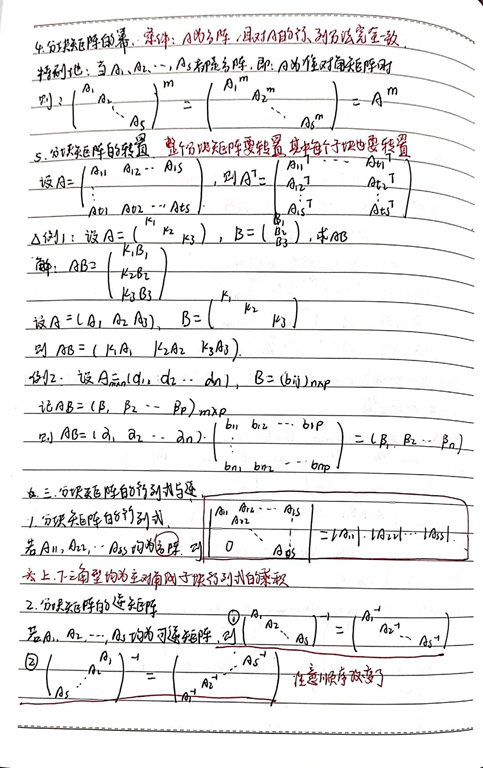 4. 分块矩阵的幂. 条件: A为方阵, 且对A的行、列分法完全一致.
特别地: 当A₁、A₂、…, As都是方阵. 即: A为准对角矩阵时
则: (A₁ A₂ ⋱ As)^m = (A₁^m A₂^m ⋱ As^m) = A^m
5. 分块矩阵的转置 整个分块矩阵要转置, 其中每个子块也要转置
设A = (A₁₁ A₁₂ … A₁s ⋮ At₁ At₂ … Ats), 则A^T = (A₁₁^T … At₁^T A₁₂^T At₂^T ⋮ A₁s^T Ats^T)
△例1: 设A = (K₁ K₂ K₃), B = (B₁ B₂ B₃), 求AB
解: AB = (K₁B₁ K₂B₂ K₃B₃)
设A = (A₁ A₂ A₃), B = (K₁ K₂ K₃)
则 AB = (K₁A₁ K₂A₂ K₃A₃).
例2. 设A_{m×n} = (α₁, α₂ … αn), B = (bij)n×p
记AB = (β₁ β₂ … βp)m×p
则 AB = (α₁ α₂ … αn)·(b₁₁ b₁₂ … b₁p ⋮ bn₁ bn₂ … bnp) = (β₁ β₂ … βn)
三. 分块矩阵的行列式与逆
1. 分块矩阵的行列式.
若A₁₁, A₂₂, … Ass均为方阵. 则 |A₁₁ A₁₂ … A₁s A₂₂ ⋮ 0 Ass| = |A₁₁|·|A₂₂|…|Ass|
上.下三角型均为主对角线子块行列式的乘积
2. 分块矩阵的逆矩阵
若A₁, A₂, …, As均为可逆矩阵, 则 ① (A₁ A₂ ⋱ As)⁻¹ = (A₁⁻¹ A₂⁻¹ ⋱ As⁻¹)
② (A₁ A₂ ⋰ As)⁻¹ = (As⁻¹ ⋰ A₂⁻¹ A₁⁻¹) 注意顺序改变了